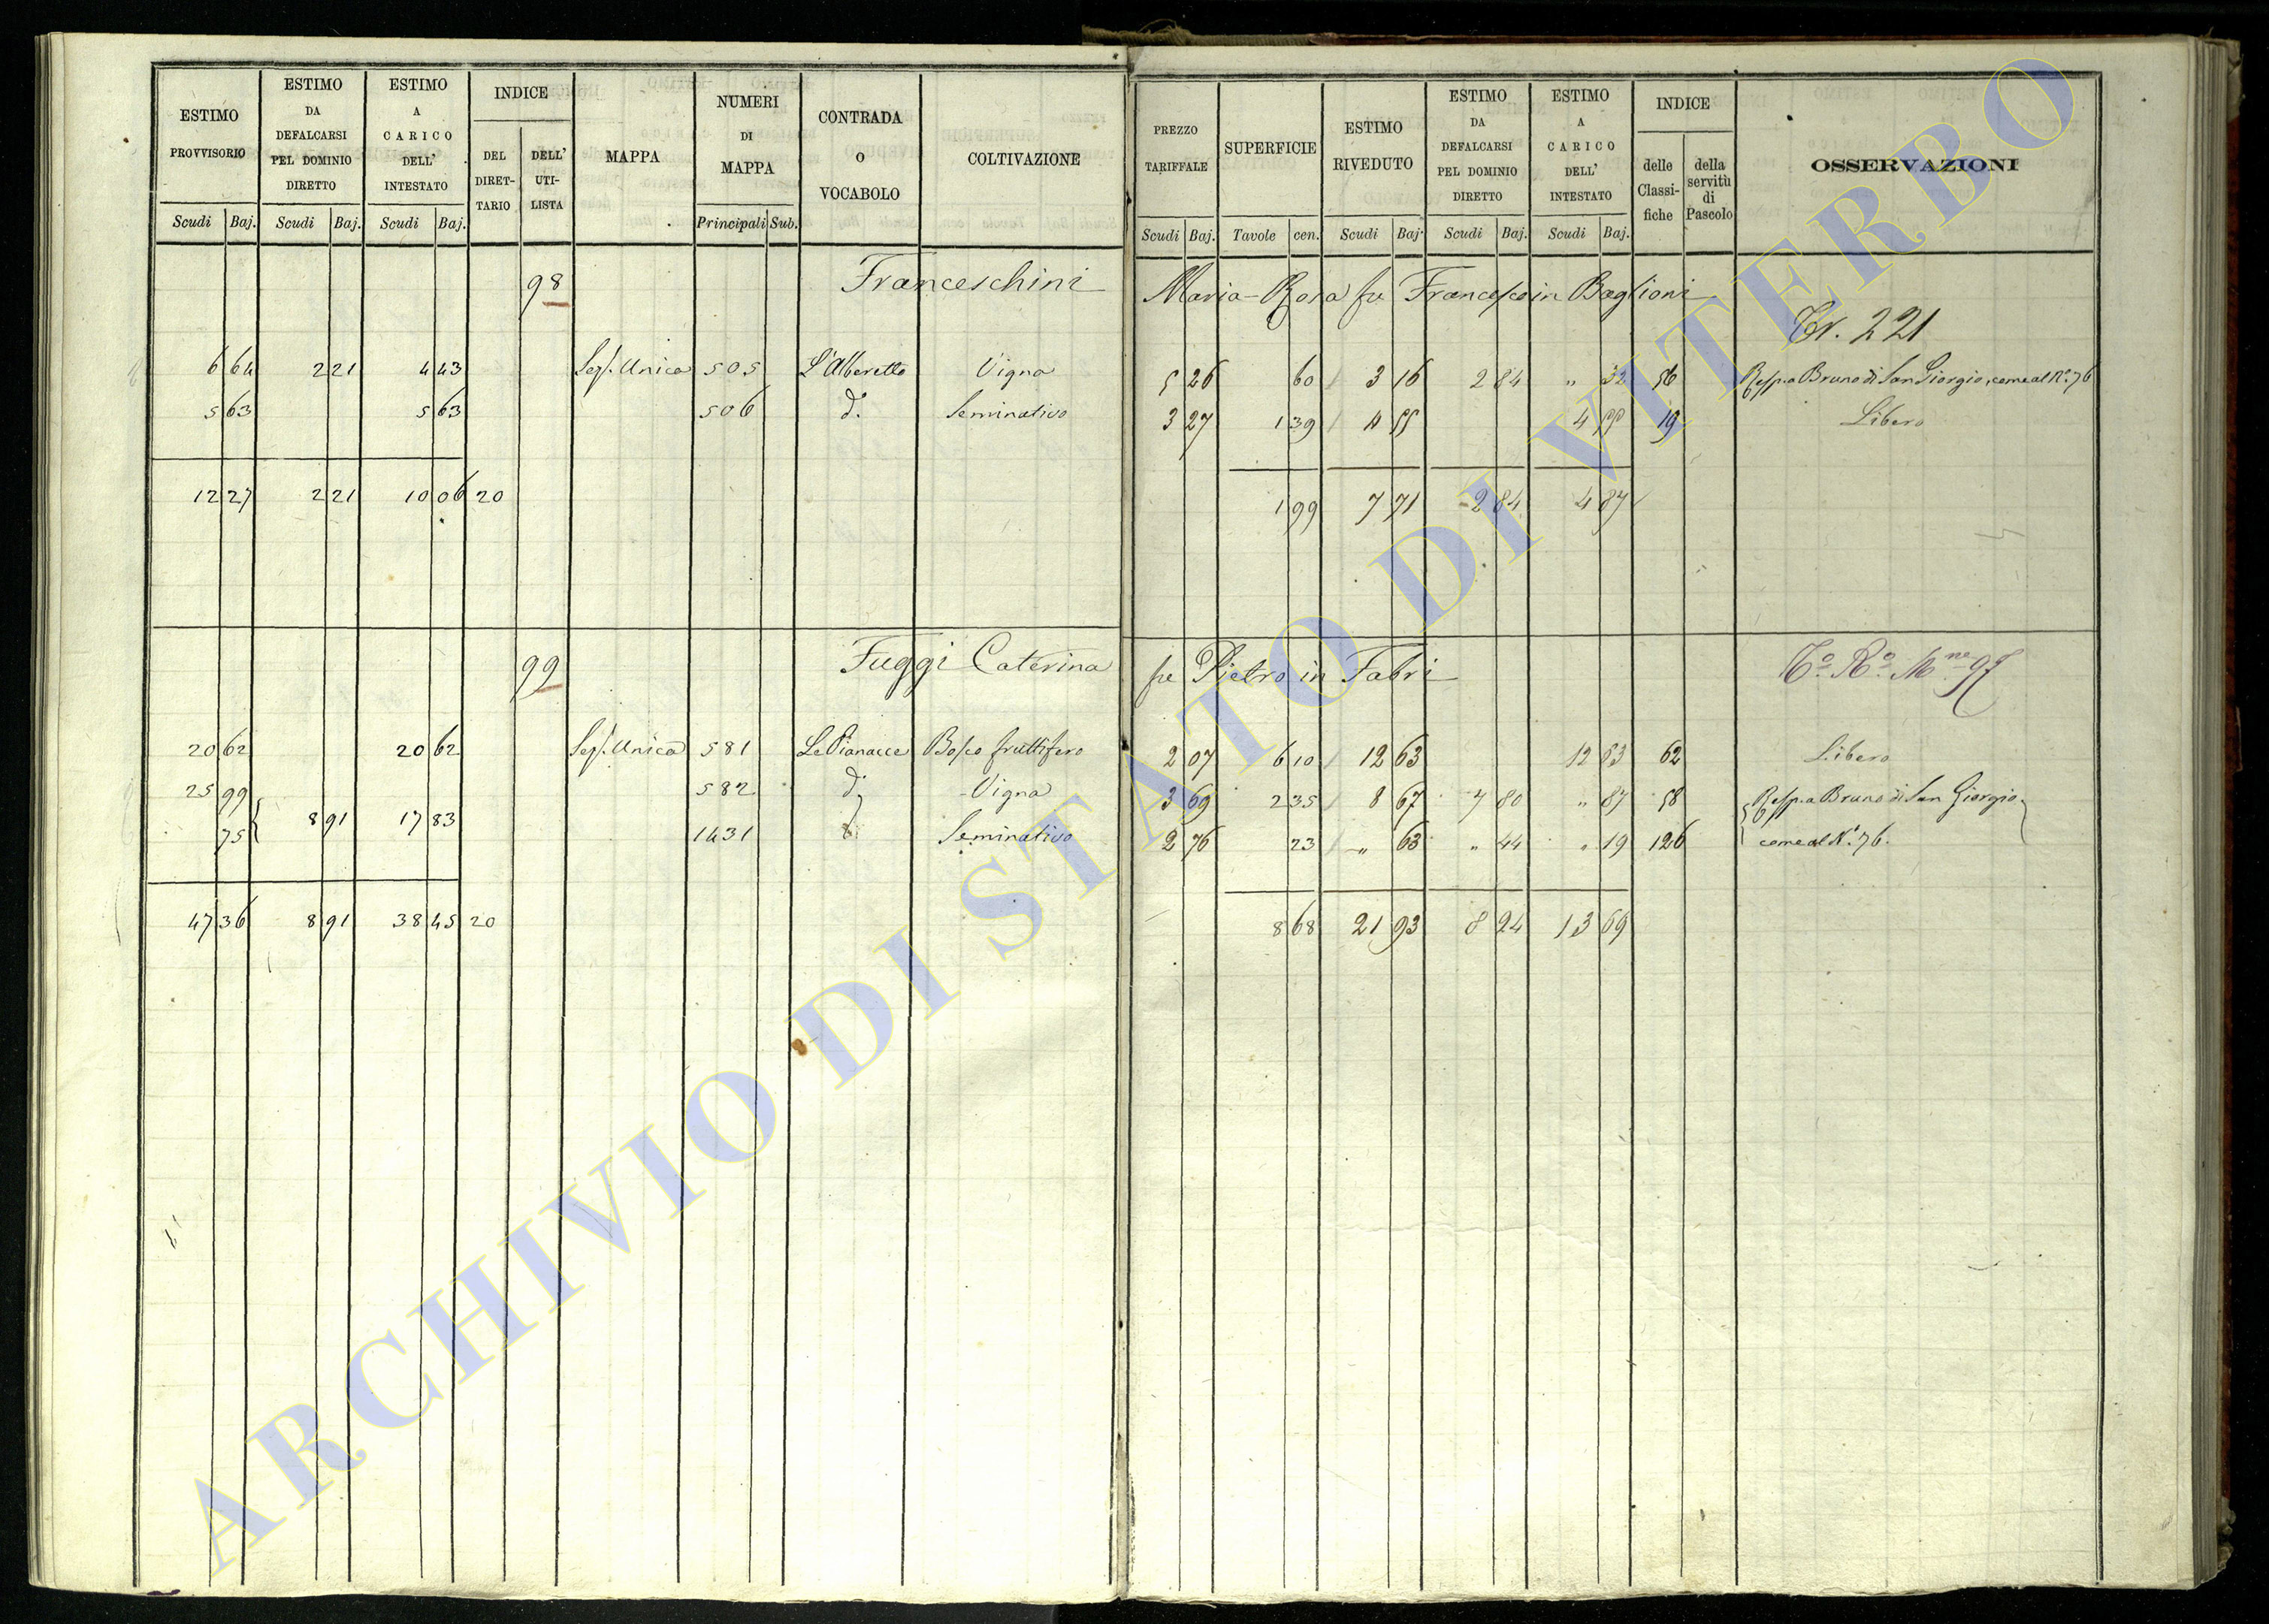 ESTIMO PROVVISORIO | ESTIMO DA DEFALCARSI PEL DOMINIO DIRETTO | ESTIMO A CARICO DELL' INTESTATO | INDICE | MAPPA | NUMERI DI MAPPA | CONTRADA O VOCABOLO | COLTIVAZIONE
DEL DIRET-TARIO | DELL' UTI-LISTA
Scudi | Baj. | Scudi | Baj. | Scudi | Baj. | Principali | Sub.
98 Franceschini
6 64 | 2 21 | 4 43 | Sez. Unica | 505 | L'Alberetto | Vigna
5 63 | 5 63 | 506 | d.º | Seminativo
12 27 | 2 21 | 10 06 | 20
99 Fuggi Caterina
20 62 | 20 62 | Sez. Unica | 581 | Le Pianacce | Bosco fruttifero
25 99 | 582 | d.º | Vigna
8 91 | 17 83
75 | 1431 | Seminativo
47 36 | 8 91 | 38 45 | 20
PREZZO TARIFFALE | SUPERFICIE | ESTIMO RIVEDUTO | ESTIMO DA DEFALCARSI PEL DOMINIO DIRETTO | ESTIMO A CARICO DELL' INTESTATO | INDICE | OSSERVAZIONI
delle Classi-fiche | della servitù di Pascolo
Scudi | Baj. | Tavole | cen. | Scudi | Baj. | Scudi | Baj. | Scudi | Baj.
Maria-Rosa fu Francesco in Baglioni
Tr. 221
5 26 | 60 | 3 16 | 2 84 | " 32 | 56 | Resp.a Bruno di San Giorgio, come al N.º 76
3 27 | 1 39 | 4 55 | 4 55 | 19 | Libero
1 99 | 7 71 | 2 84 | 4 87
fu Pietro in Fabri
2 07 | 6 10 | 12 63 | 12 63 | 62 | Libero
3 69 | 2 35 | 8 67 | 7 80 | " 87 | 58 | Resp.a Bruno di San Giorgio
2 76 | 23 | " 63 | " 44 | " 19 | 126 | come al N.º 76.
8 68 | 21 93 | 8 24 | 13 69
ARCHIVIO DI STATO DI VITERBO